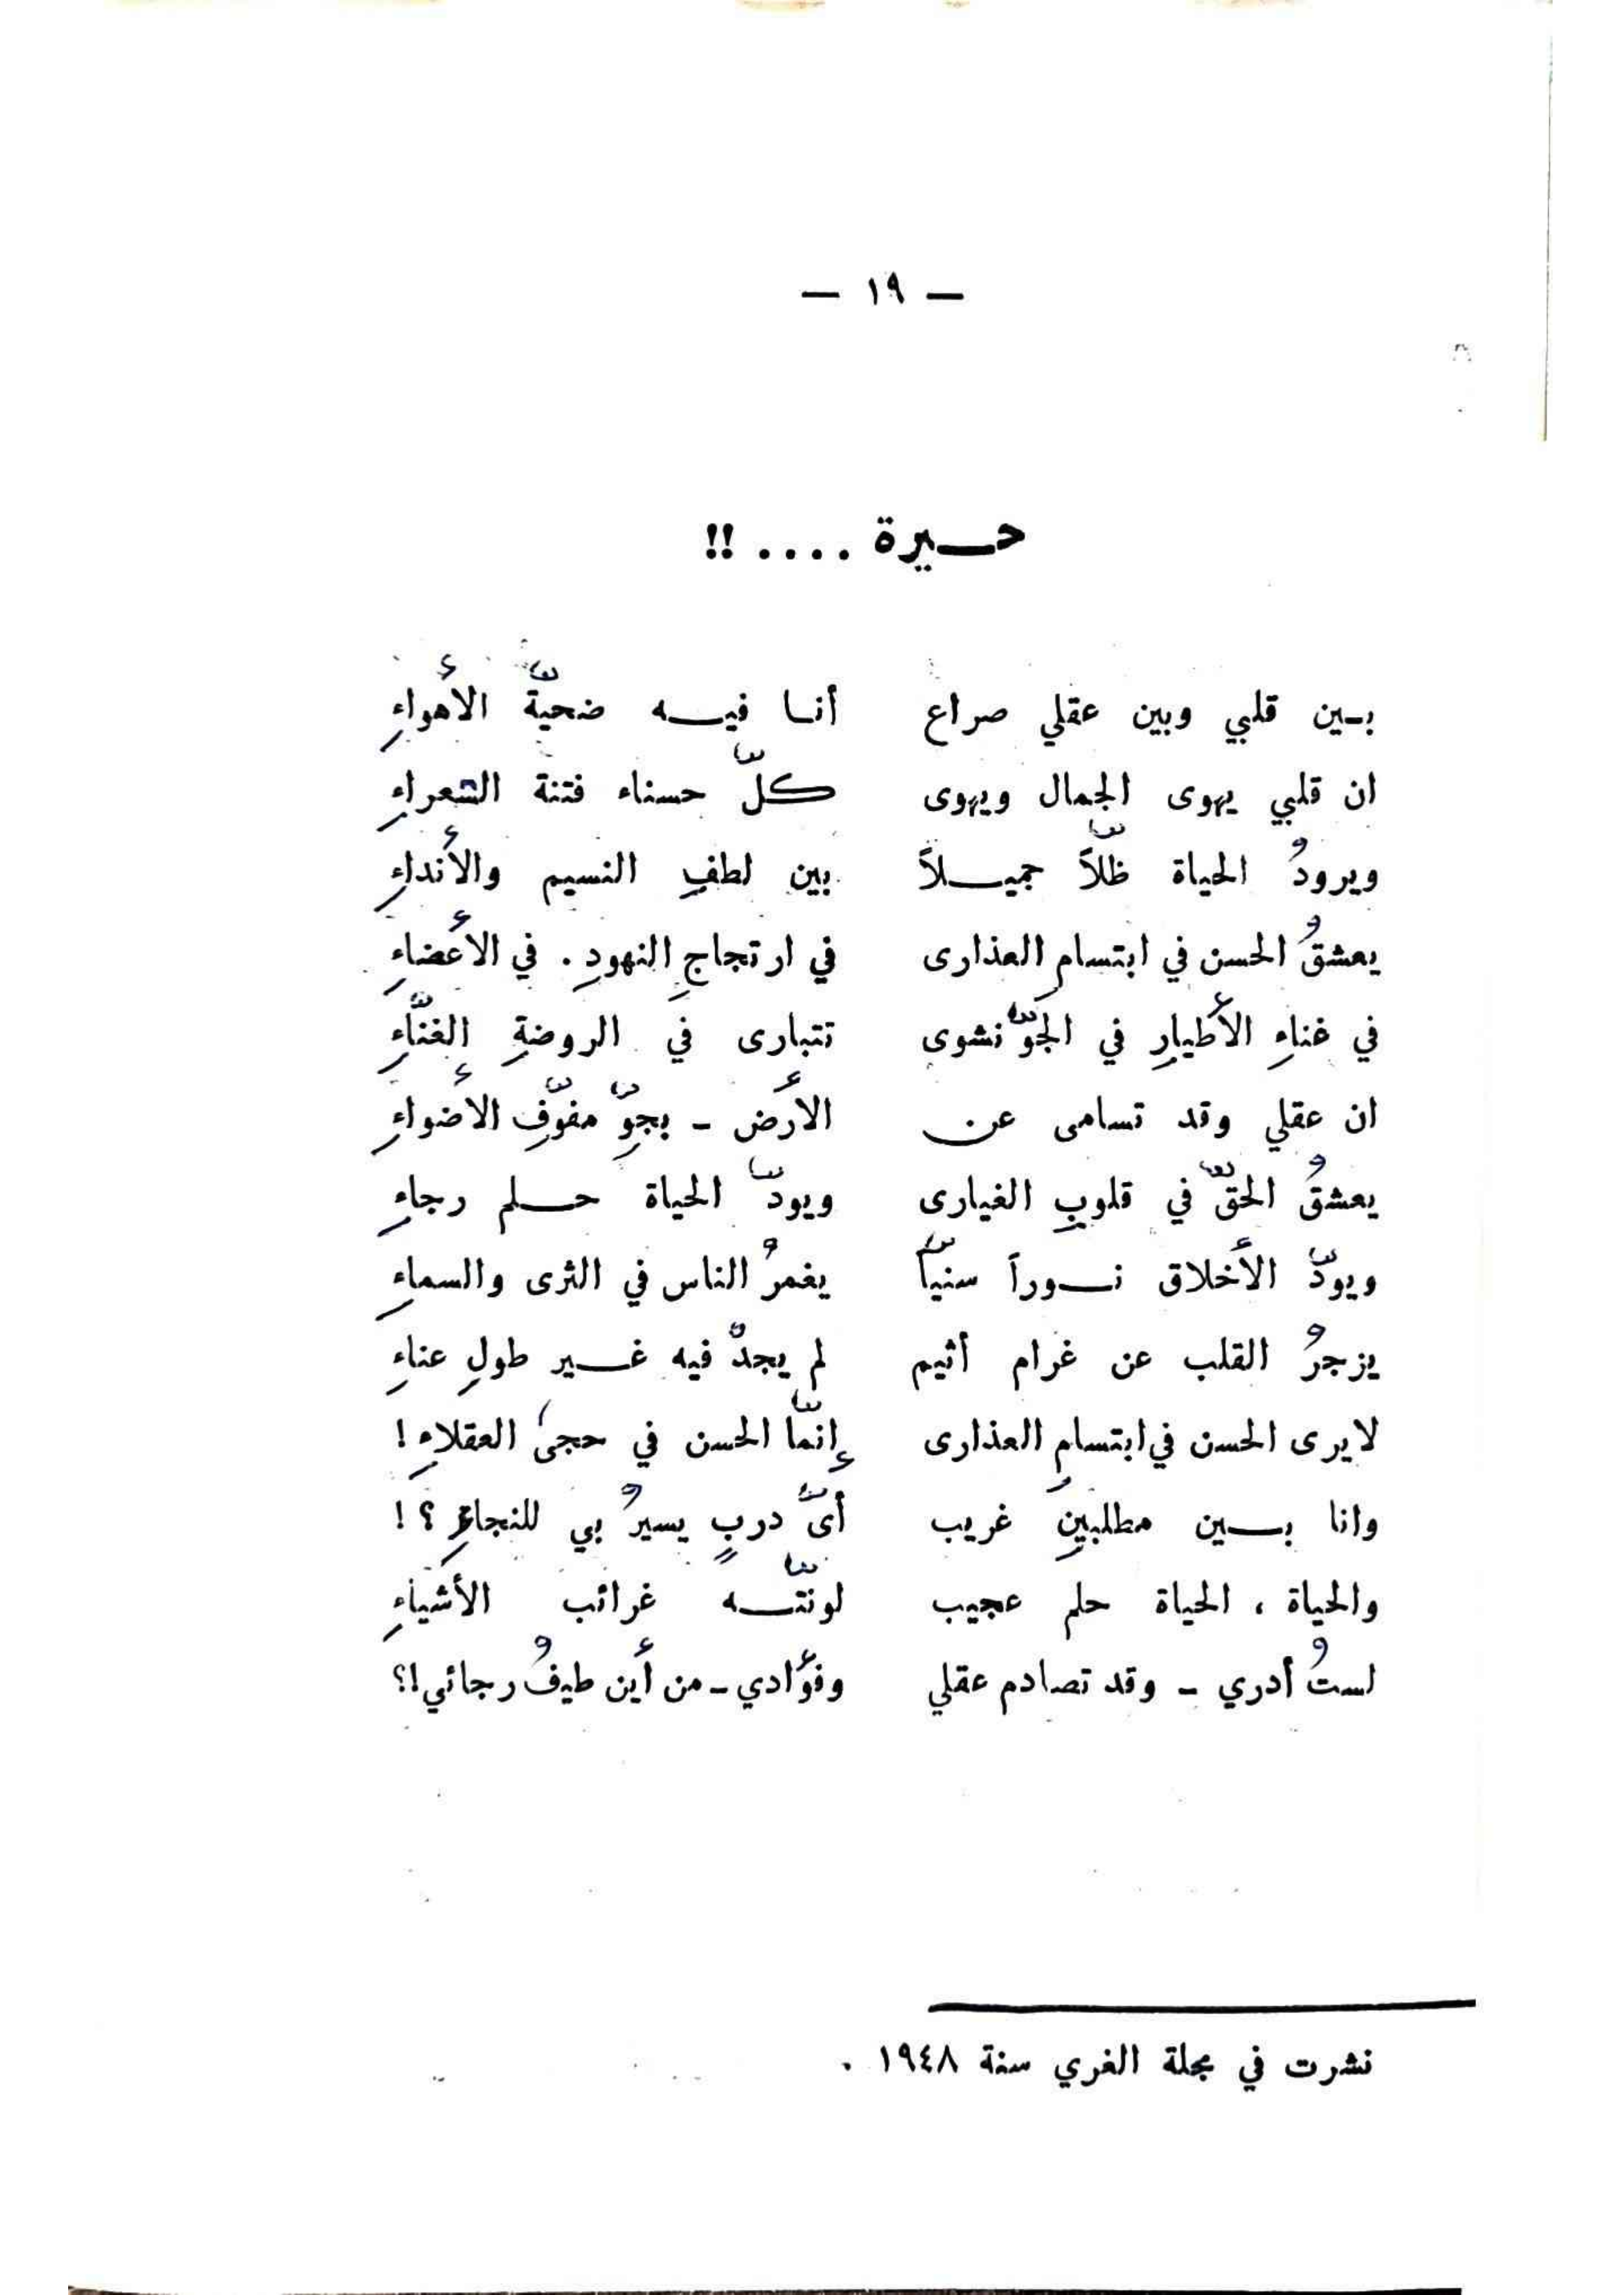 — ١٩ —
حـــيرة .... !!
بـين قلبي وبين عقلي صراع أنـا فيـــه ضحيّة الأهواءِ
ان قلبي يهوى الجمال ويهوى كلّ حسناء فتنة الشعراءِ
ويرودُ الحياة ظلّاً جميـــلاً بين لطفِ النسيم والأنداءِ
يعشقُ الحسن في ابتسامِ العذارى في ارتجاجِ النهودِ . في الأعضاءِ
في غناءِ الأطيارِ في الجوّ نشوى تتبارى في الروضةِ الغنّاءِ
ان عقلي وقد تسامى عن الأرض - بجوٍّ مفوّفِ الأضواءِ
يعشقُ الحقّ في قلوبِ الغيارى ويودّ الحياة حـــلم رجاءِ
ويودّ الأخلاق نـــوراً سنيّاً يغمرُ الناس في الثرى والسماءِ
يزجرُ القلب عن غرام أثيم لم يجدْ فيه غـــير طولِ عناءِ
لا يرى الحسن في ابتسامِ العذارى إنمّا الحسن في حجىَ العقلاءِ !
وانا بـــين مطلبينِ غريب أىّ دربٍ يسيرُ بي للنجاءِ ؟ !
والحياة ، الحياة حلم عجيب لونتّـــه غرائب الأشياءِ
لستُ أدري - وقد تصادم عقلي وفؤادي - من أين طيفُ رجائي !؟
نشرت في مجلة الغري سنة ١٩٤٨ .